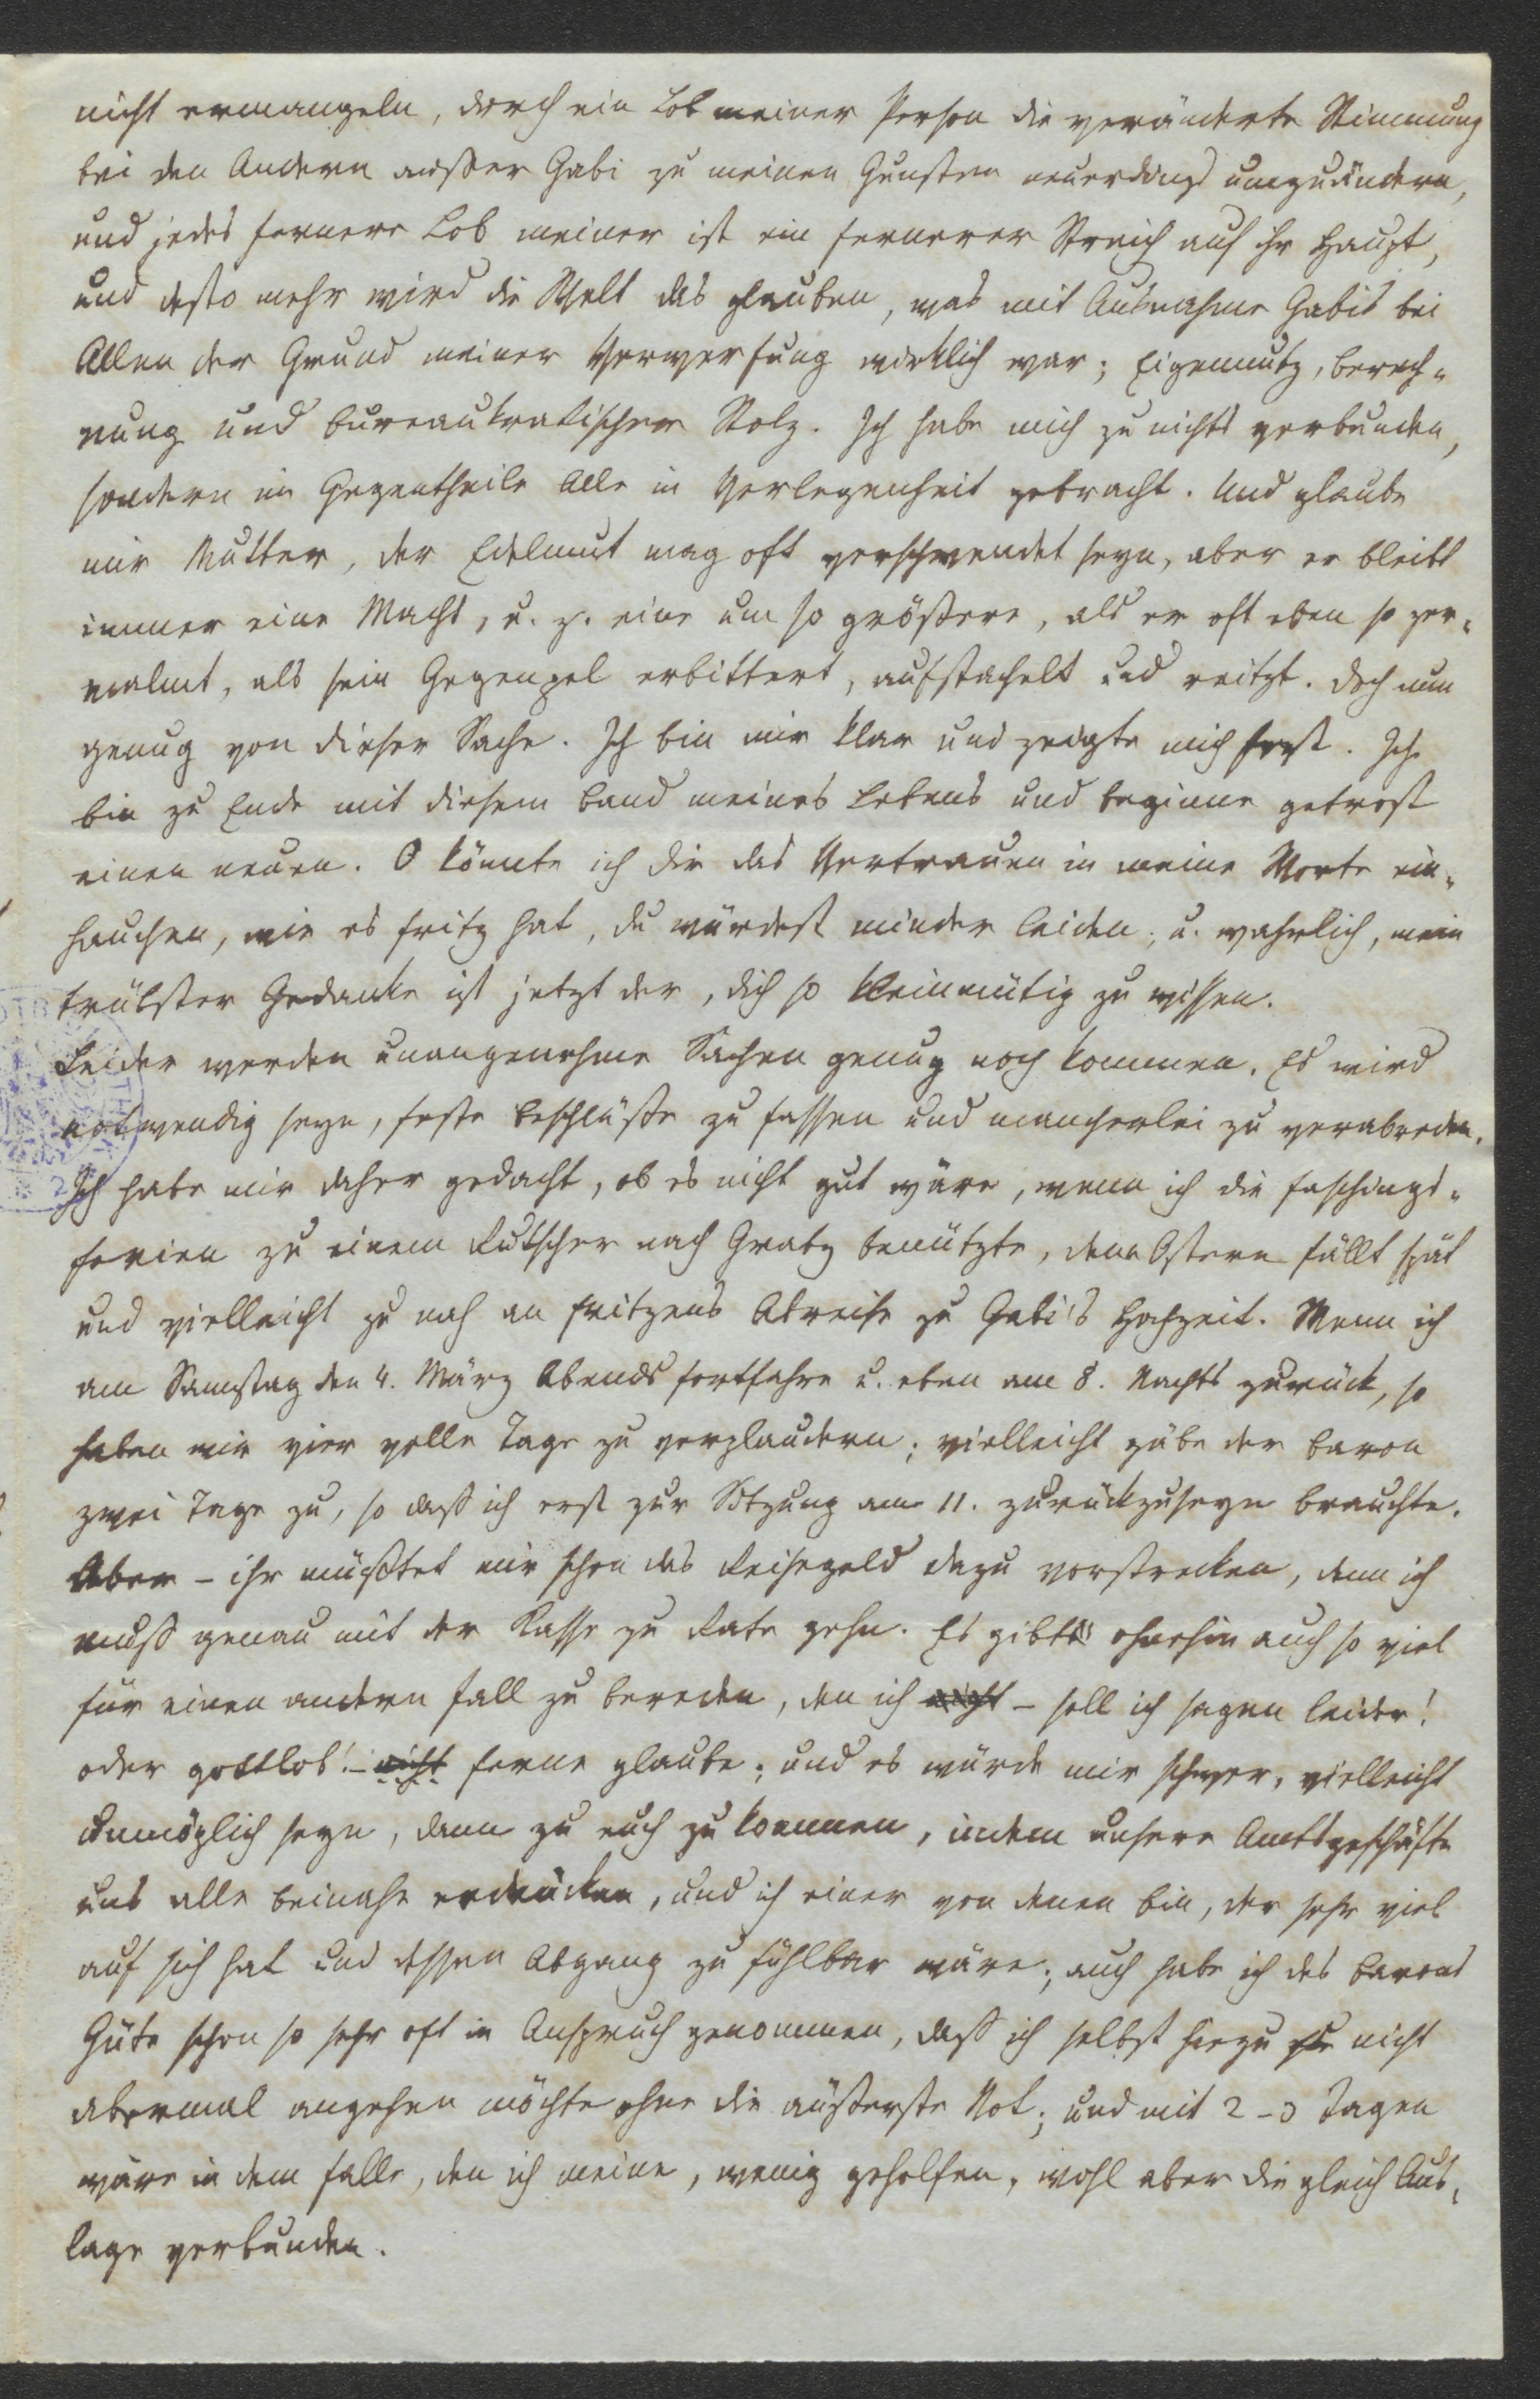 nicht ermangeln, durch ein Lob meiner Person die veränderte Stimmung
bei den Andern außer Gabi zu meinen Gunsten neuerdings umzuändern,
und jedes fernere Lob meiner ist ein fernerer Streich auf ihr Haupt,
und desto mehr wird die Welt das glauben, was mit Ausnahme Gabis bei
Allen der Grund meiner Verwerfung wirklich war; Eigennutz, Berech-
nung und bureaukratischer Stolz. Ich habe mich zu nichts verbunden,
sondern im Gegentheile Alle in Verlegenheit gebracht. Und glaube
mir Mutter, der Edelmut mag oft verschwendet seyn, aber er bleibt
immer eine Macht, u. z. eine um so größere, als er oft eben so zer-
malmt, als sein Gegenpol erbittert, aufstachelt und reitzt. Doch nun
genug von dieser Sache. Ich bin mir klar und zeigte mich fest. Ich
bin zu Ende mit diesem Band meines Lebens und beginne getrost
einen neuen. O könnte ich dir das Vertrauen in meine Worte ein-
hauchen, wie es Fritz hat, du würdest minder leiden; u. wahrlich, mein
trübster Gedanke ist jetzt der, dich so kleinmütig zu wissen.
Leider werden unangenehme Sachen genug noch kommen. Es wird
notwendig seyn, feste Beschlüße zu fassen und mancherlei zu verabreden.
Ich habe mir daher gedacht, ob es nicht gut wäre, wenn ich die Faschings-
ferien zu einem Rutscher nach Gratz benützte, denn Ostern fällt spät
und vielleicht zu nah an Fritzens Abreise zu Gabi's Hochzeit. Wenn ich
am Samstag den 4. März Abends fortfahre u. eben am 8. Nachts zurück, so
haben wir vier volle Tage zu verplaudern; vielleicht gäbe der Baron
zwei Tage zu, so daß ich erst zur Sitzung am 11. zurückzuseyn brauchte.
Aber – ihr müßtet mir schon das Reisegeld dazu vorstrecken, denn ich
muß genau mit der Kasse zu Rate gehn. Es gibt ohnehin auch so viel
für einen andern Fall zu bereden, den ich nicht – soll ich sagen leider!
oder gottlob! – nicht ferne glaube; und es würde mir schwer, vielleicht
unmöglich seyn, dann zu euch zu kommen, indem unsere Amtsgeschäfte
uns alle beinahe erdrücken, und ich einer von denen bin, der sehr viel
auf sich hat und dessen Abgang zu fühlbar wäre; auch habe ich des Barons
Güte schon so sehr oft in Anspruch genommen, daß ich selbst hiezu sie nicht
abermal angehen möchte ohne die äußerste Not; und mit 2–3 Tagen
wäre in dem Falle, den ich meine, wenig geholfen, wohl aber die gleich Aus-
lage verbunden.